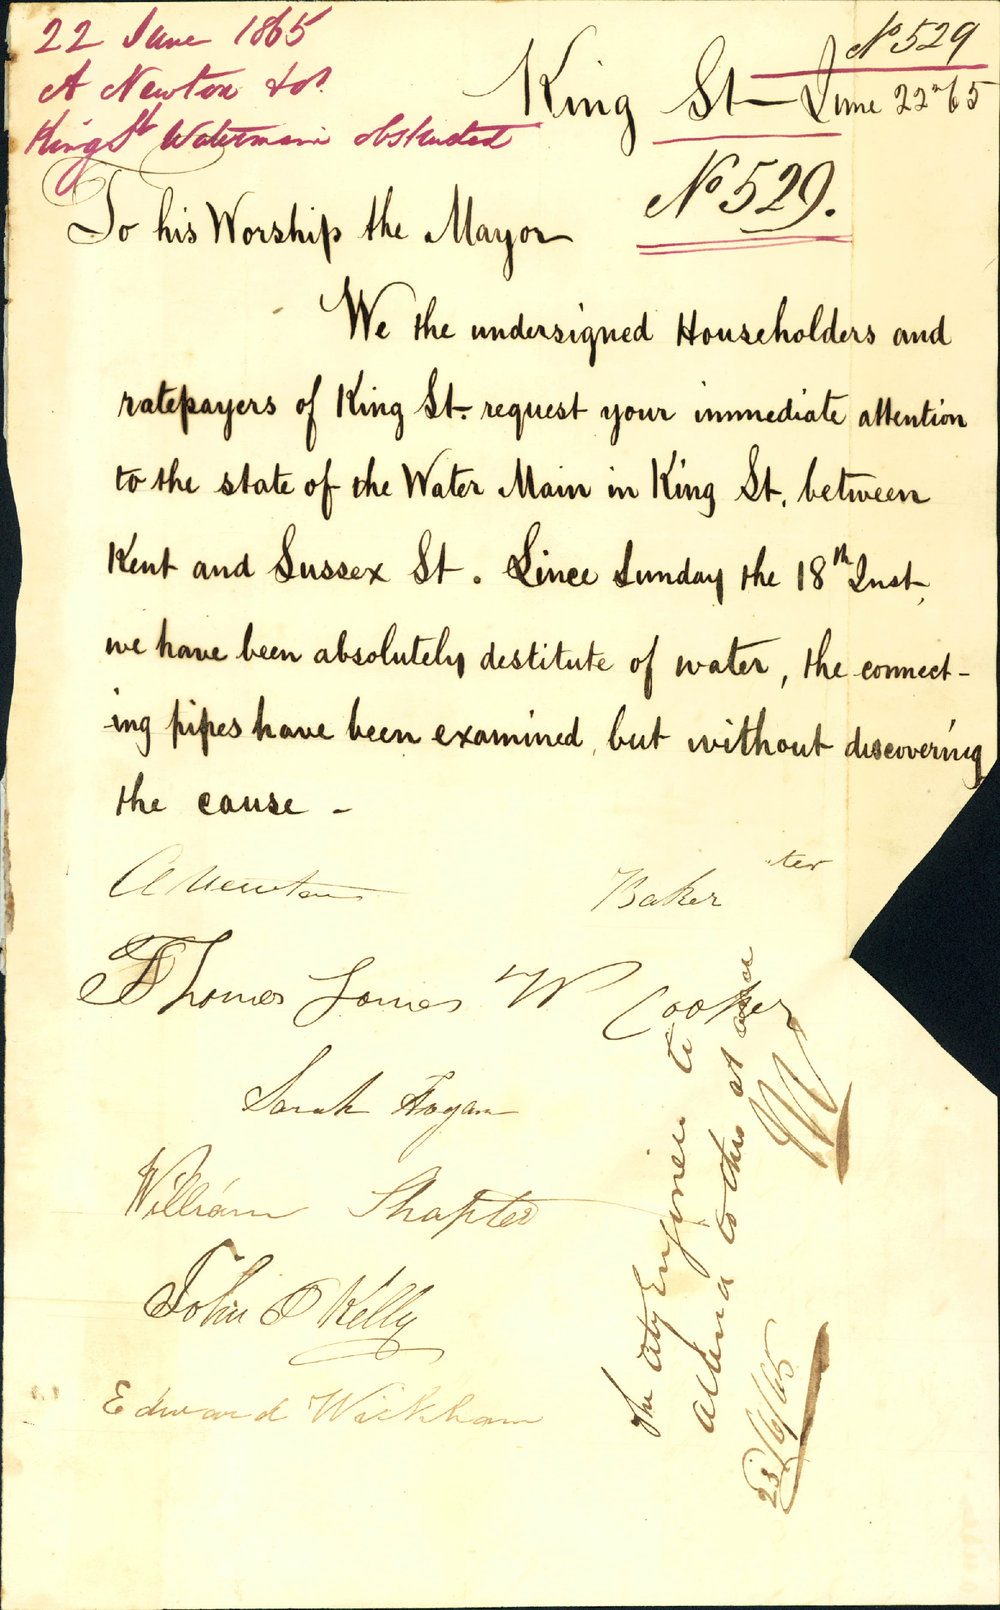 22 June 1865
A Newton & or
King St Watermain obstructed
No 529
King St June 22nd 65
No 529.
To his Worship the Mayor
We the undersigned Householders and
ratepayers of King St. request your immediate attention
to the state of the Water Main in King St. between
Kent and Sussex St. Since Sunday the 18th Inst.
we have been absolutely destitute of water, the connect-
ing pipes have been examined, but without discovering
the cause -
A Newton
Baker
Thomas James W Cooker
Sarah Hogan
William Shapter
John O Kelly
Edward Wickham
The City Engineer to
attend to this at once
23/6/65